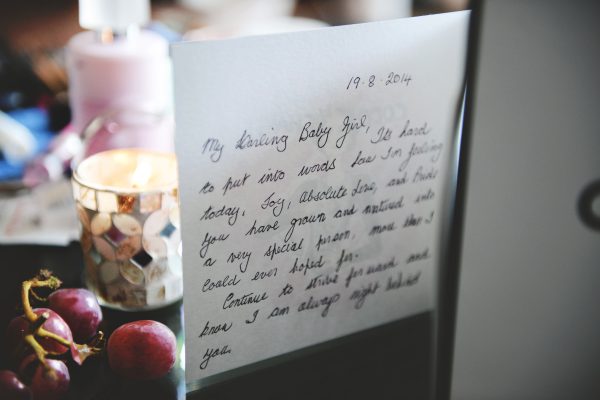 19·8·2014
My Darling Baby Girl, Its hard
to put into words how I'm feeling
today, Joy, Absolute Love, and Pride
you have grown and matured into
a very special person, more than I
could ever hoped for.
Continue to strive forward and
know I am always right behind
you.